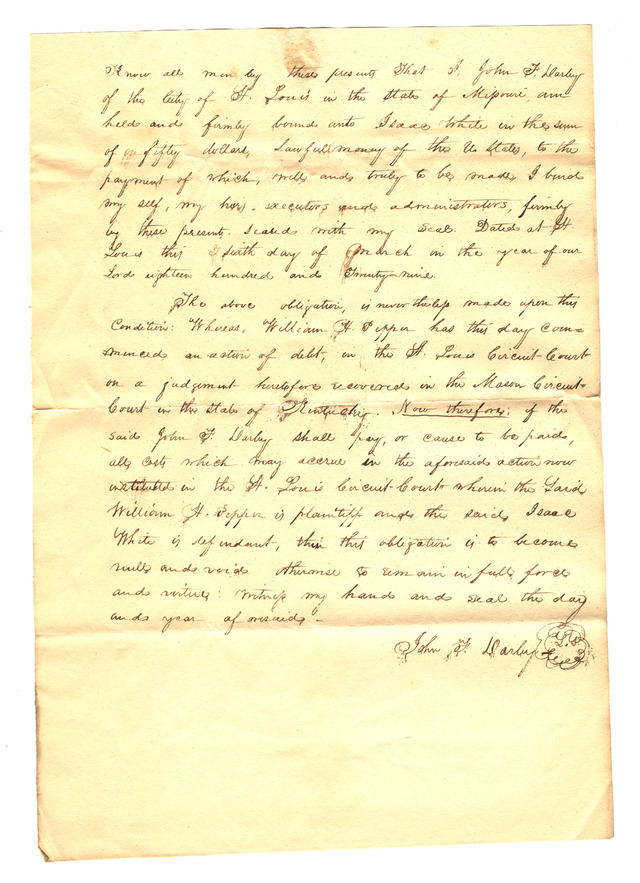 Know all men by these presents That I, John F. Darby
of the City of St. Louis in the state of Missouri, am
held and firmly bound unto Isaac White in the sum
of fifty dollars, Lawfull money of the U. States, to the
payment of which, well and truly to be made, I bind
my self, my hers, executors and administrators, firmly
by these presents. Sealed with my seal. Dated at St
Louis this sixth day of March in the year of our
Lord eighteen hundred and Twenty-nine.
The above obligation, is nevertheless made upon this
Condition: Whereas, William H. Pepper has this day com-
menced an action of debt, in the St. Louis Circuit Court
on a judgement heretofore recovered in the Mason Circuit
Court in the state of Kentucky. Now therefore; if the
said John F. Darby shall pay, or cause to be paid,
all costs which may accrue in the aforesaid action now
instituted in the St. Louis Circuit Court wherein the Said
William H. Pepper is plaintiff and the said Isaac
White is defendant, then this obligation is to become
null and void otherwise to remain in full force
and virtue: witness my hand and seal the day
and year aforesaid"-
John F. Darby